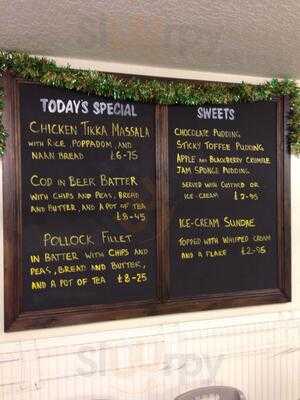 TODAY'S SPECIAL
CHICKEN TIKKA MASSALA
WITH RICE, POPPADOM, AND
NAAN BREAD £6-75
COD IN BEER BATTER
WITH CHIPS AND PEAS, BREAD
AND BUTTER, AND A POT OF TEA
£8-45
POLLOCK FILLET
IN BATTER WITH CHIPS AND
PEAS, BREAD AND BUTTER,
AND A POT OF TEA £8-25
SWEETS
CHOCOLATE PUDDING
STICKY TOFFEE PUDDING
APPLE AND BLACKBERRY CRUMBLE
JAM SPONGE PUDDING
SERVED WITH CUSTARD OR
ICE-CREAM £2-95
ICE-CREAM SUNDAE
TOPPED WITH WHIPPED CREAM
AND A FLAKE £2-95